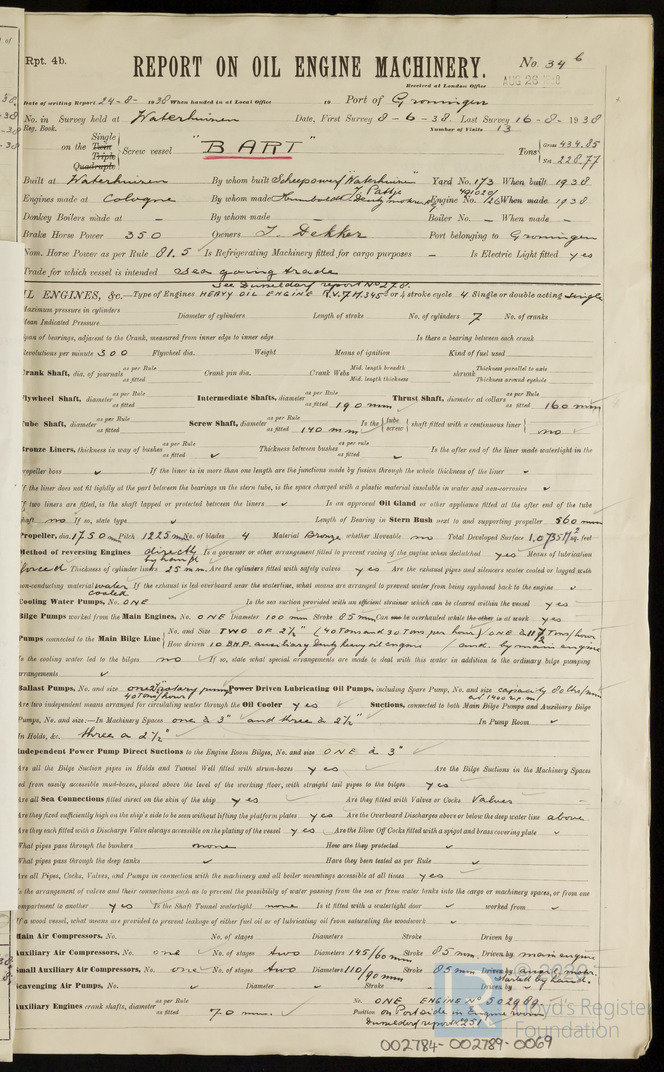 Rpt. 4b.
REPORT ON OIL ENGINE MACHINERY.
No. 34 b
Received at London Office
AUG 26 1938
Date of writing Report 24-8-1938 When handed in at Local Office 19 Port of Groningen
No. in Survey held at Waterhuizen Date, First Survey 8-6-38 Last Survey 16-8-1938
Reg. Book. Number of Visits 13
on the Single Twin Triple Quadruple Screw vessel "BART" Tons Gross 434.85 Net 228.77
Built at Waterhuizen By whom built Scheepswerf "Waterhuizen" J. Pattje Yard No. 173 When built 1938
Engines made at Cologne By whom made Humboldt Deutzmotoren Engine No. When made 1938
Donkey Boilers made at - By whom made - Boiler No. - When made -
Brake Horse Power 350 Owners J. Dekker Port belonging to Groningen
Nom. Horse Power as per Rule 81.5 Is Refrigerating Machinery fitted for cargo purposes - Is Electric Light fitted yes
Trade for which vessel is intended Sea going trade
See Dusseldorf report No 278.
IL ENGINES, &c.—Type of Engines HEAVY OIL ENGINE R.V.7M.345 2 or 4 stroke cycle 4 Single or double acting single
Maximum pressure in cylinders Diameter of cylinders Length of stroke No. of cylinders 7 No. of cranks
Mean Indicated Pressure
Span of bearings, adjacent to the Crank, measured from inner edge to inner edge Is there a bearing between each crank
Revolutions per minute 300 Flywheel dia. Weight Means of ignition Kind of fuel used
Crank Shaft, dia. of journals as per Rule as fitted Crank pin dia. Crank Webs Mid. length breadth Mid. length thickness shrunk Thickness parallel to axis Thickness around eyehole
Flywheel Shaft, diameter as per Rule as fitted Intermediate Shafts, diameter as per Rule as fitted 190 mm Thrust Shaft, diameter at collars as per Rule as fitted 160 mm
Tube Shaft, diameter as per Rule as fitted Screw Shaft, diameter as per Rule as fitted 140 mm Is the tube screw shaft fitted with a continuous liner no
Bronze Liners, thickness in way of bushes as per Rule as fitted ✓ Thickness between bushes as per rule as fitted ✓ Is the after end of the liner made watertight in the
propeller boss ✓ If the liner is in more than one length are the junctions made by fusion through the whole thickness of the liner ✓
If the liner does not fit tightly at the part between the bearings in the stern tube, is the space charged with a plastic material insoluble in water and non-corrosive ✓
If two liners are fitted, is the shaft lapped or protected between the liners ✓ Is an approved Oil Gland or other appliance fitted at the after end of the tube
shaft no If so, state type ✓ Length of Bearing in Stern Bush next to and supporting propeller 560 mm
Propeller, dia. 1750 mm Pitch 1225 m No. of blades 4 Material Bronze whether Moveable no Total Developed Surface sq. feet
Method of reversing Engines directly by hand Is a governor or other arrangement fitted to prevent racing of the engine when declutched yes Means of lubrication
forced Thickness of cylinder liners 25 mm Are the cylinders fitted with safety valves yes Are the exhaust pipes and silencers water cooled or lagged with
non-conducting material water cooled If the exhaust is led overboard near the waterline, what means are arranged to prevent water from being syphoned back to the engine ✓
Cooling Water Pumps, No. ONE Is the sea suction provided with an efficient strainer which can be cleared within the vessel yes
Bilge Pumps worked from the Main Engines, No. ONE Diameter 100 mm Stroke 85 mm Can one be overhauled while the other is at work yes
Pumps connected to the Main Bilge Line No. and Size TWO OF 2½" (40 Tons and 30 Tons per hour) ONE à 11½ Tons/hour
How driven 10 B.H.P. auxiliary Deutz heavy oil engine / and by main engine
Is the cooling water led to the bilges no If so, state what special arrangements are made to deal with this water in addition to the ordinary bilge pumping
arrangements ✓
Ballast Pumps, No. and size one 2½" rotary pump 40 tons/hour Power Driven Lubricating Oil Pumps, including Spare Pump, No. and size capacity 80 ltrs/min at 1400 r.p.m.
Are two independent means arranged for circulating water through the Oil Cooler yes Suctions, connected to both Main Bilge Pumps and Auxiliary Bilge
Pumps, No. and size:—In Machinery Spaces one à 3" and three à 2½" In Pump Room ✓
In Holds, &c. three à 2½"
Independent Power Pump Direct Suctions to the Engine Room Bilges, No. and size ONE à 3"
Are all the Bilge Suction pipes in Holds and Tunnel Well fitted with strum-boxes yes Are the Bilge Suctions in the Machinery Spaces
led from easily accessible mud-boxes, placed above the level of the working floor, with straight tail pipes to the bilges yes
Are all Sea Connections fitted direct on the skin of the ship yes Are they fitted with Valves or Cocks Valves
Are they fixed sufficiently high on the ship's side to be seen without lifting the platform plates yes Are the Overboard Discharges above or below the deep water line above
Are they each fitted with a Discharge Valve always accessible on the plating of the vessel yes Are the Blow Off Cocks fitted with a spigot and brass covering plate ✓
What pipes pass through the bunkers none How are they protected ✓
What pipes pass through the deep tanks ✓ Have they been tested as per Rule ✓
Are all Pipes, Cocks, Valves, and Pumps in connection with the machinery and all boiler mountings accessible at all times yes
Is the arrangement of valves and their connections such as to prevent the possibility of water passing from the sea or from water tanks into the cargo or machinery spaces, or from one
compartment to another yes Is the Shaft Tunnel watertight none Is it fitted with a watertight door ✓ worked from ✓
If a wood vessel, what means are provided to prevent leakage of either fuel oil or of lubricating oil from saturating the woodwork ✓
Main Air Compressors, No. No. of stages Diameters Stroke Driven by
Auxiliary Air Compressors, No. one No. of stages two Diameters 145/60 mm Stroke 85 mm Driven by main engine
Small Auxiliary Air Compressors, No. one No. of stages two Diameters 110/90 mm Stroke 85 mm Driven by started by hand.
Scavenging Air Pumps, No. ✓ Diameter ✓ Stroke ✓ Driven by ✓
Auxiliary Engines crank shafts, diameter as per Rule as fitted 70 mm. No. ONE ENGINE No 502989.
Position on Portside in Engine room
Dusseldorf report No 251
Lloyd's Register
Foundation
002784-002789-0069